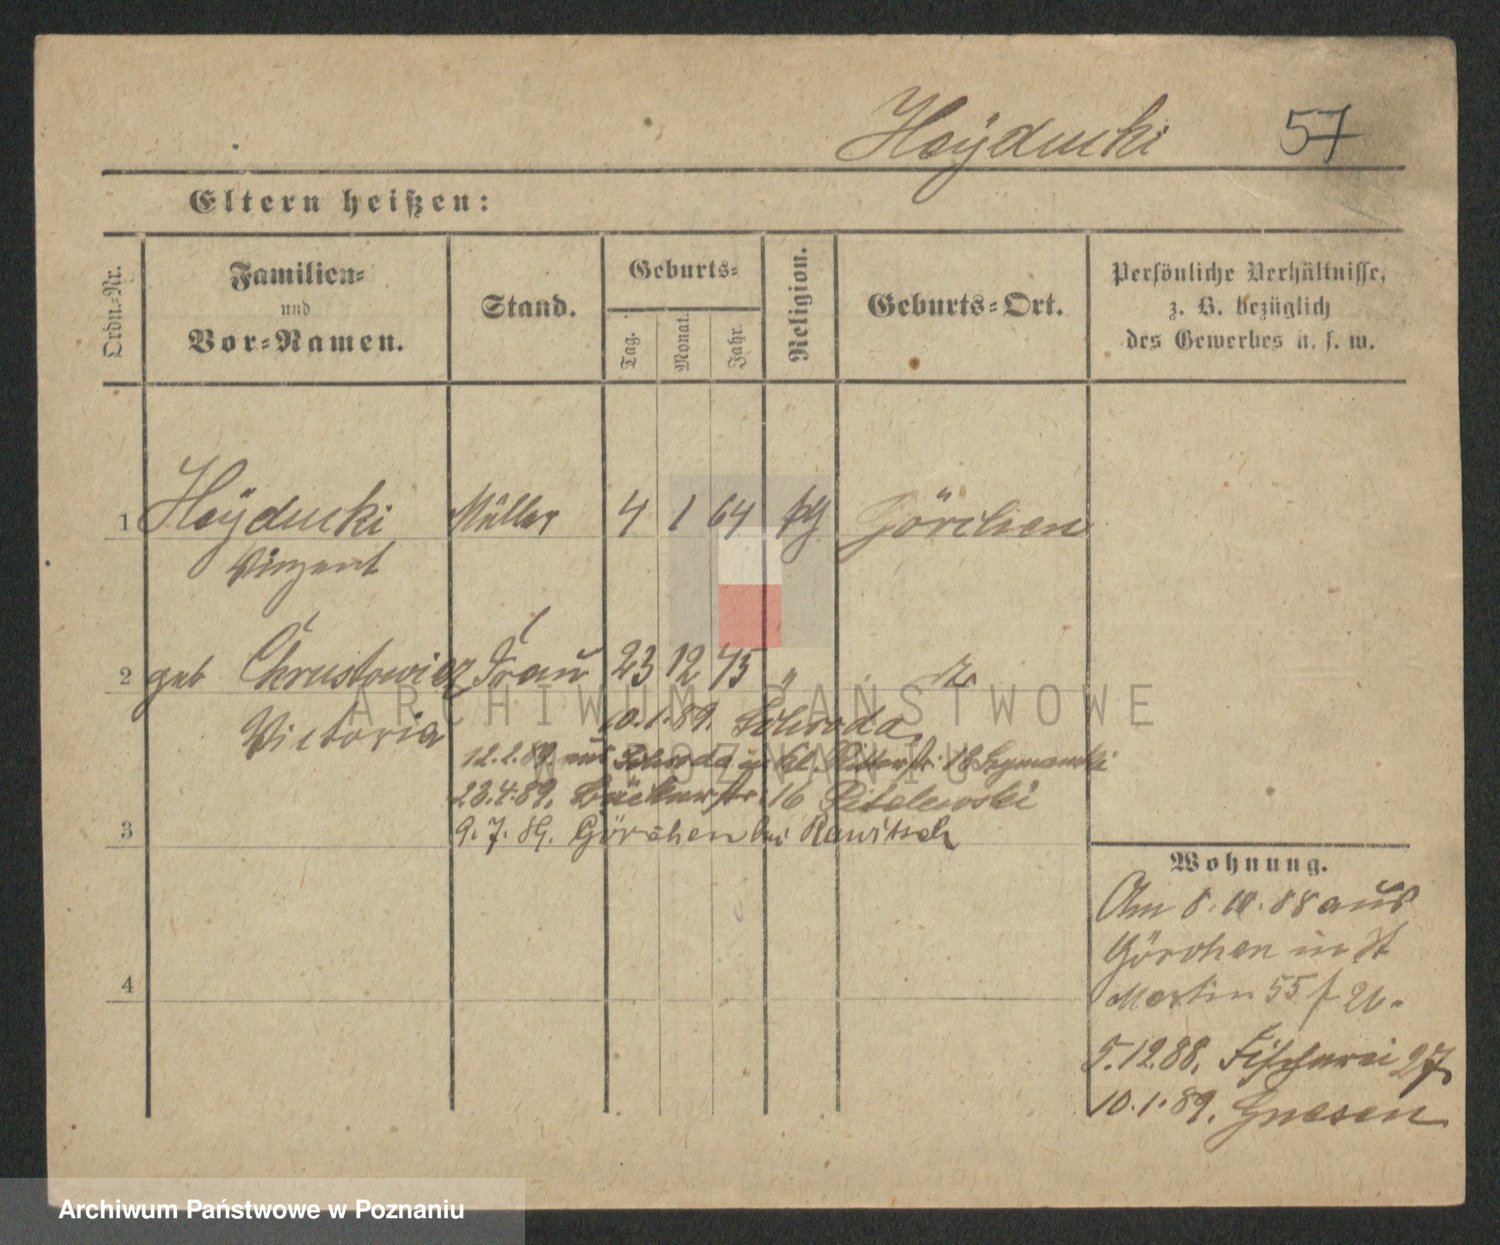 Heyducki 57
Eltern heißen:
Ordn.-Nr.
Familien-
und
Vor-Namen.
Stand.
Geburts-
Tag.
Monat.
Jahr.
Religion.
Geburts-Ort.
Persönliche Verhältnisse,
z. B. bezüglich
des Gewerbes u. s. w.
1 Heyducki Müller 4 1 64 Görchen
Vinzent
2 geb Chrustowicz Frau 23 12 75 "
Victoria
10.1.89. Schroda
12.2.89 aus Schroda in Kl. Ritterstr. 18 Szymanski
23.4.89. Bäckerstr. 16
3 9.7.89. Görchen bei Rawitsch
Wohnung.
Am 8.10.88 aus
Görchen in St
Martin 55 f
4
5.12.88. Fischerei 27
10.1.89. Gnesen
ARCHIWUM PAŃSTWOWE
W POZNANIU
Archiwum Państwowe w Poznaniu